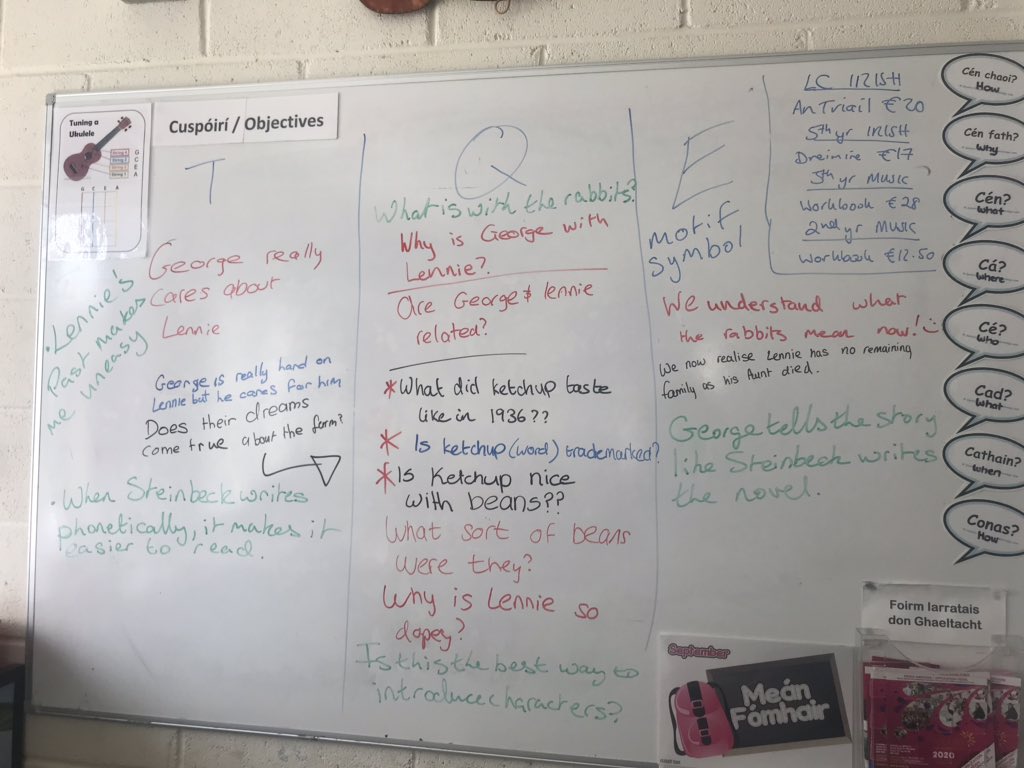 Tuning a
Ukulele
G
C
E
A
G C E A
Cuspóirí / Objectives
T
• Lennie's
Past makes
me uneasy
George really
cares about
Lennie
George is really hard on
Lennie but he cares for him
Does their dreams
come true about the farm?
• When Steinbeck writes
phonetically, it makes it
easier to read.
Q
What is with the rabbits?
Why is George with
Lennie?
Are George & lennie
related?
* What did ketchup taste
like in 1936??
* Is ketchup (word) trademarked?
* Is Ketchup nice
with beans??
What sort of beans
were they?
Why is Lennie so
dopey?
Is this the best way to
introduce characters?
E
motif
symbol
We understand what
the rabbits mean now!
We now realise Lennie has no remaining
family as his Aunt died.
George tells the story
like Steinbeck writes
the novel.
LC IRISH
An Triail €20
5th yr IRISH
Dreimire €17
5th yr MUSIC
Workbook €28
2nd yr MUSIC
Workbook €12.50
Cén chaoi?
How
Cén fath?
Why
Cén?
What
Cá?
where
Cé?
who
Cad?
What
Cathain?
when
Conas?
How
September
Meán
Fómhair
Foirm Iarratais
don Ghaeltacht
2020